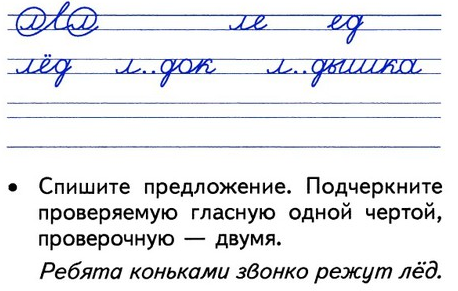 лвл ле ед
лёд л..док л..дышка
• Спишите предложение. Подчеркните
проверяемую гласную одной чертой,
проверочную — двумя.
Ребята коньками звонко режут лёд.